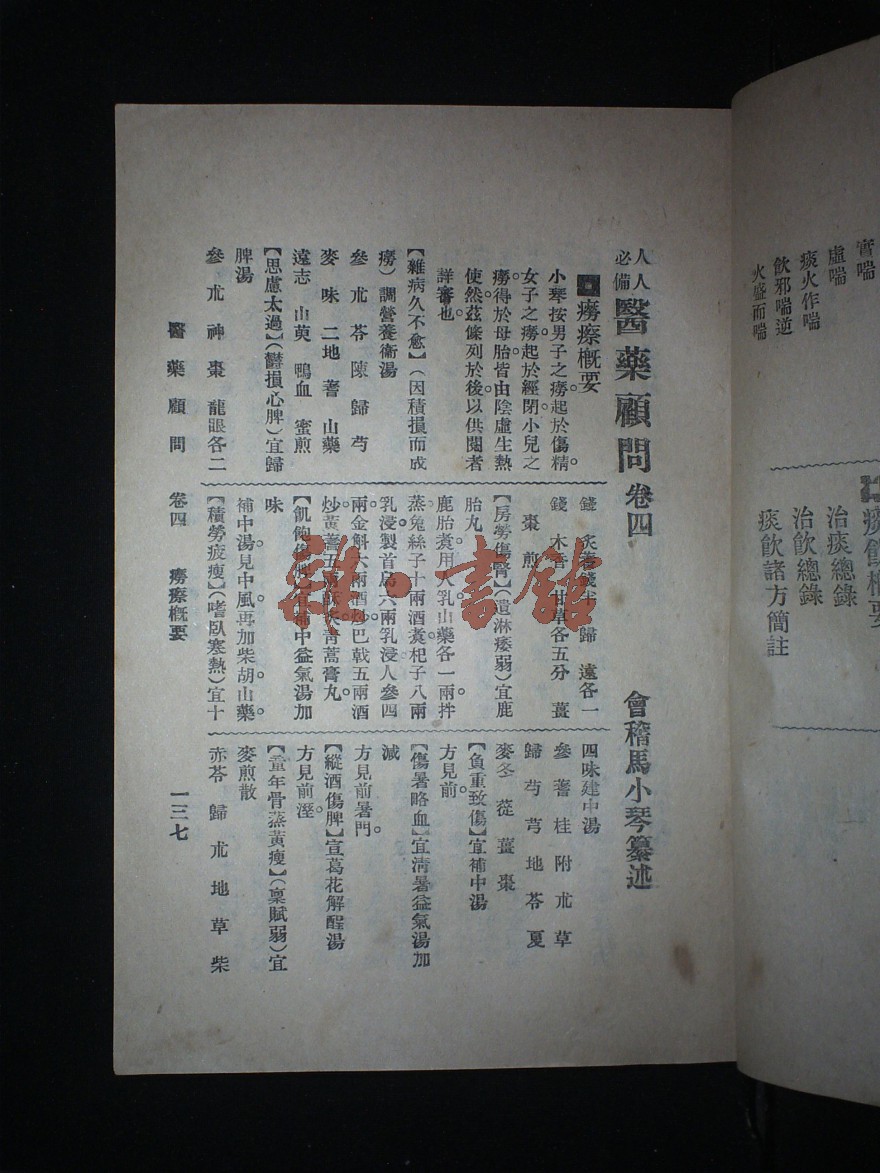 實喘
虛喘
痰火作喘
飲邪喘逆
火盛而喘
痰飲概要
治痰總錄
治飲總錄
痰飲諸方簡註
人人必備 醫藥顧問 卷四
會稽馬小琴纂述
癆瘵概要
小琴按男子之癆起於傷精。
女子之癆起於經閉。小兒之
癆得於母胎。皆由陰虛生熱
使然。茲條列於後。以供閱者
詳審也。
【雜病久不愈】(因積損而成
癆)調營養衞湯
參 朮 苓 陳 歸 芍
麥 味 二地 蓍 山藥
遠志 山萸 鴨血 蜜煎
【思慮太過】(鬱損心脾)宜歸
脾湯
參 朮 神 棗 龍眼各二
錢 歸 遠各一
錢 木香 甘草各五分 薑
棗 煎
【房勞傷腎】(遺淋痿弱)宜鹿
胎丸
鹿胎煑用人乳山藥各一兩拌
蒸兔絲子十兩酒煑杞子八兩
乳浸製首烏六兩乳浸人參四
兩金斛六兩酒炒巴戟五兩酒
炒黃蓍五兩青蒿膏丸。
【飢飽傷脾】宜補中益氣湯加
味
補中湯見中風。再加柴胡山藥。
【積勞疲瘦】(嗜臥寒熱)宜十
四味建中湯
參 蓍 桂 附 朮 草
歸 芍 芎 地 苓 夏
麥冬 蓯 薑 棗
【負重致傷】宜補中湯
方見前。
【傷暑略血】宜清暑益氣湯加
減
方見前暑門。
【縱酒傷脾】宣葛花解酲湯
方見前溼。
【童年骨蒸黃瘦】(稟賦弱)宜
麥煎散
赤苓 歸 朮 地 草 柴
醫藥顧問 卷四 癆瘵概要 一三七
雜·書館